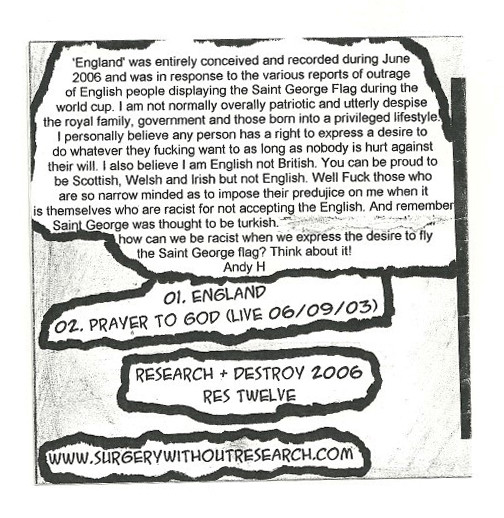 'England' was entirely conceived and recorded during June
2006 and was in response to the various reports of outrage
of English people displaying the Saint George Flag during the
world cup. I am not normally overally patriotic and utterly despise
the royal family, government and those born into a privileged lifestyle.
I personally believe any person has a right to express a desire to
do whatever they fucking want to as long as nobody is hurt against
their will. I also believe I am English not British. You can be proud to
be Scottish, Welsh and Irish but not English. Well Fuck those who
are so narrow minded as to impose their predujice on me when it
is themselves who are racist for not accepting the English. And remember
Saint George was thought to be turkish.
how can we be racist when we express the desire to fly
the Saint George flag? Think about it!
Andy H
01. ENGLAND
02. PRAYER TO GOD (LIVE 06/09/03)
RESEARCH + DESTROY 2006
RES TWELVE
WWW.SURGERYWITHOUTRESEARCH.COM